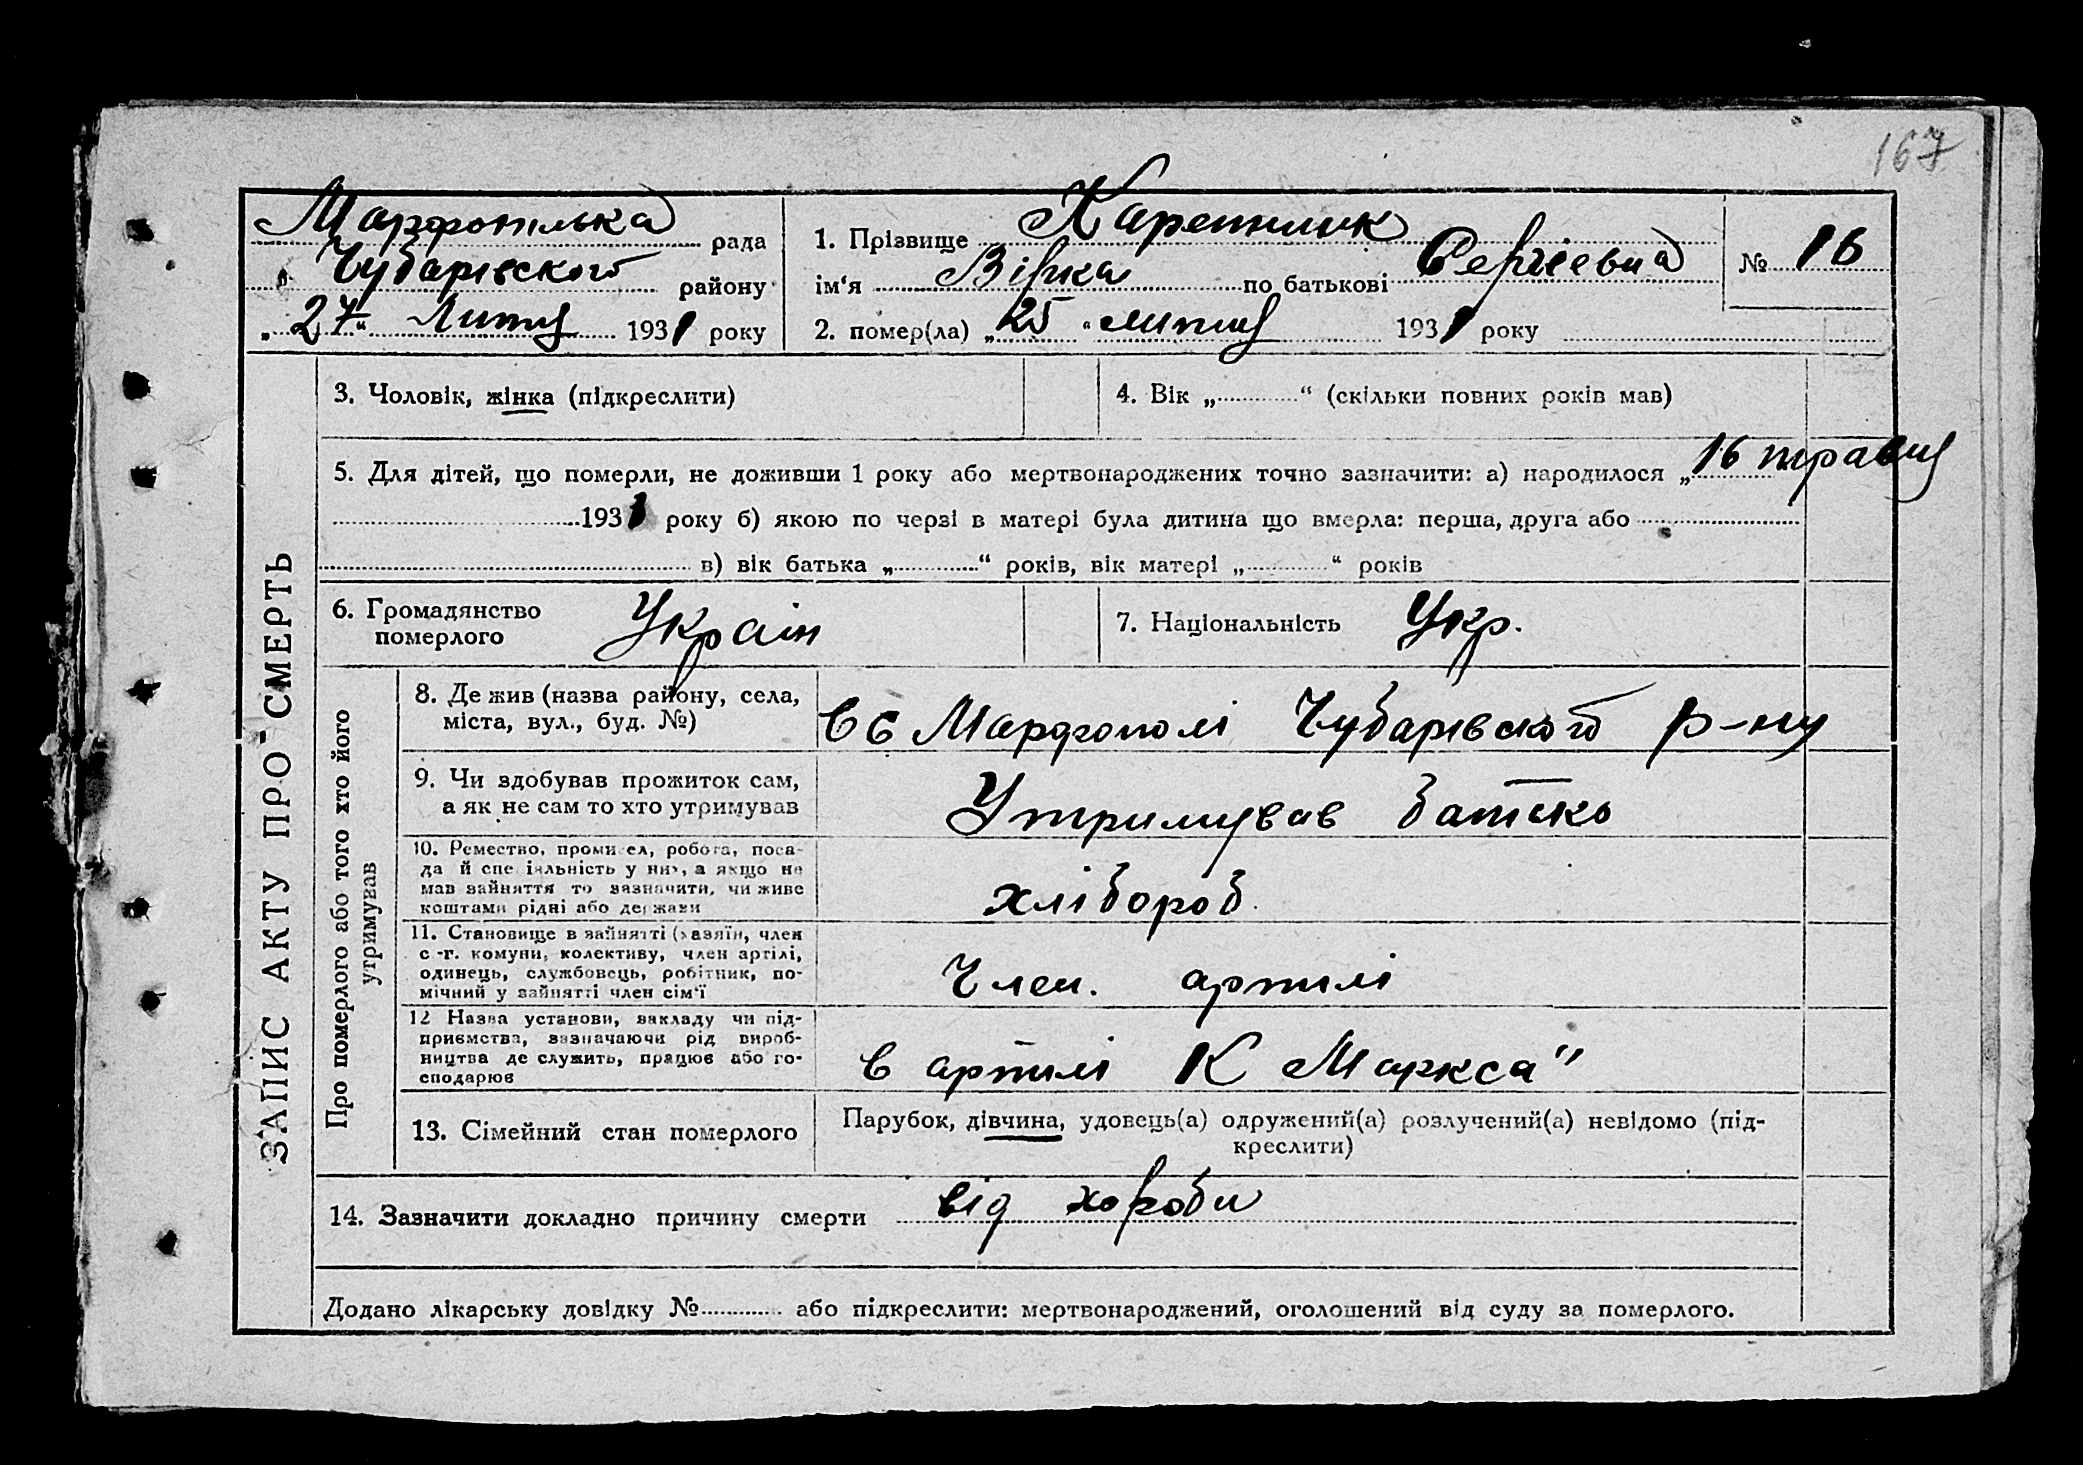 167
Марфопілька рада
Чубарівського району
„27“ Липня 1931 року
1. Прізвище Каретник
ім‘я Вірка по батькові Сергіевна
2. помер(ла) „25“ липня 1931 року
№ 16
ЗАПИС АКТУ ПРО СМЕРТЬ
3. Чоловік, жінка (підкреслити)
4. Вік „ “ (скільки повних років мав)
5. Для дітей, що померли, не доживши 1 року або мертвонароджених точно зазначити: а) народилося „16 травня
1931 року б) якою по черзі в матері була дитина що вмерла: перша, друга або
в) вік батька „ “ років, вік матері „ “ років
6. Громадянство
померлого
Україн
7. Національність Укр.
Про померлого або того хто його
утримував
8. Де жив (назва району, села,
міста, вул., буд. №)
в с Марфополі Чубарівского р-ну
9. Чи здобував прожиток сам,
а як не сам то хто утримував
Утримував батько
10. Ремество, промисел, робота, поса-
да й спеціяльність у них, а якщо не
мав зайняття то зазначити, чи живе
коштами рідні або держави
хлібороб.
11. Становище в зайнятті (хазяїн, член
с.-г. комуни, колективу, член артілі,
одинець, службовець, робітник, по-
мічний у зайнятті член сім‘ї
Член. артилі
12 Назва установи, закладу чи під-
приємства, зазначаючи рід вироб-
ництва де служить, працює або го-
сподарює
в артилі К Маркса"
13. Сімейний стан померлого
Парубок, дівчина, удовець(а) одружений(а) розлучений(а) невідомо (під-
креслити)
14. Зазначити докладно причину смерти від хороби
Додано лікарську довідку № або підкреслити: мертвонароджений, оголошений від суду за померлого.